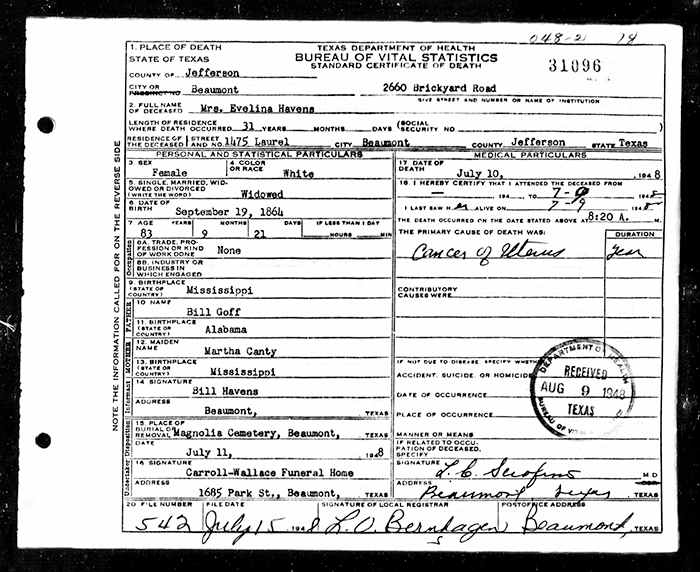 048-2 18
1. PLACE OF DEATH
STATE OF TEXAS
TEXAS DEPARTMENT OF HEALTH
BUREAU OF VITAL STATISTICS
STANDARD CERTIFICATE OF DEATH
31096
COUNTY OF Jefferson
CITY OR
PRECINCT NO. Beaumont 2660 Brickyard Road
GIVE STREET AND NUMBER OR NAME OF INSTITUTION
2. FULL NAME
OF DECEASED Mrs. Evelina Havens
LENGTH OF RESIDENCE
WHERE DEATH OCCURRED 31 YEARS MONTHS DAYS (SOCIAL SECURITY NO )
RESIDENCE OF THE DECEASED (STREET AND NO. 1475 Laurel CITY Beaumont COUNTY Jefferson STATE Texas
PERSONAL AND STATISTICAL PARTICULARS
3 SEX
Female
4 COLOR OR RACE
White
5 SINGLE, MARRIED, WIDOWED OR DIVORCED
(WRITE THE WORD) Widowed
6 DATE OF BIRTH
September 19, 1864
7 AGE YEARS MONTHS DAYS IF LESS THAN 1 DAY
83 9 21 HOURS MIN
Occupation
8A. TRADE, PROFESSION OR KIND OF WORK DONE None
8B. INDUSTRY OR BUSINESS IN WHICH ENGAGED
9. BIRTHPLACE
(STATE OR COUNTRY) Mississippi
FATHER
10 NAME
Bill Goff
11. BIRTHPLACE
(STATE OR COUNTRY) Alabama
MOTHER
12. MAIDEN NAME
Martha Canty
13. BIRTHPLACE
(STATE OR COUNTRY) Mississippi
Informant
14 SIGNATURE
Bill Havens
ADDRESS
Beaumont, TEXAS
Undertaker Disposition
15. PLACE OF BURIAL OR REMOVAL Magnolia Cemetery, Beaumont, TEXAS
DATE
July 11, 1948
16 SIGNATURE
Carroll-Wallace Funeral Home
ADDRESS
1685 Park St., Beaumont, TEXAS
MEDICAL PARTICULARS
17 DATE OF DEATH
July 10, 1948
18. I HEREBY CERTIFY THAT I ATTENDED THE DECEASED FROM
— 194 TO 7- 1948
I LAST SAW H er ALIVE ON 7-9 1948
THE DEATH OCCURRED ON THE DATE STATED ABOVE AT 8:20 A. M.
THE PRIMARY CAUSE OF DEATH WAS: DURATION
Cancer of Uterus Year
CONTRIBUTORY
CAUSES WERE
IF NOT DUE TO DISEASE SPECIFY WHETHER
ACCIDENT, SUICIDE, OR HOMICIDE
DATE OF OCCURRENCE
PLACE OF OCCURRENCE
MANNER OR MEANS
IF RELATED TO OCCUPATION OF DECEASED, SPECIFY
DEPARTMENT OF HEALTH
RECEIVED
AUG 9 1948
TEXAS
BUREAU OF
SIGNATURE L. C. Serafino M D
ADDRESS Beaumont Texas TEXAS
20 FILE NUMBER FILE DATE SIGNATURE OF LOCAL REGISTRAR POSTOFFICE ADDRESS
542 July 15 1948 L. O. Bernhagen Beaumont, TEXAS
NOTE THE INFORMATION CALLED FOR ON THE REVERSE SIDE